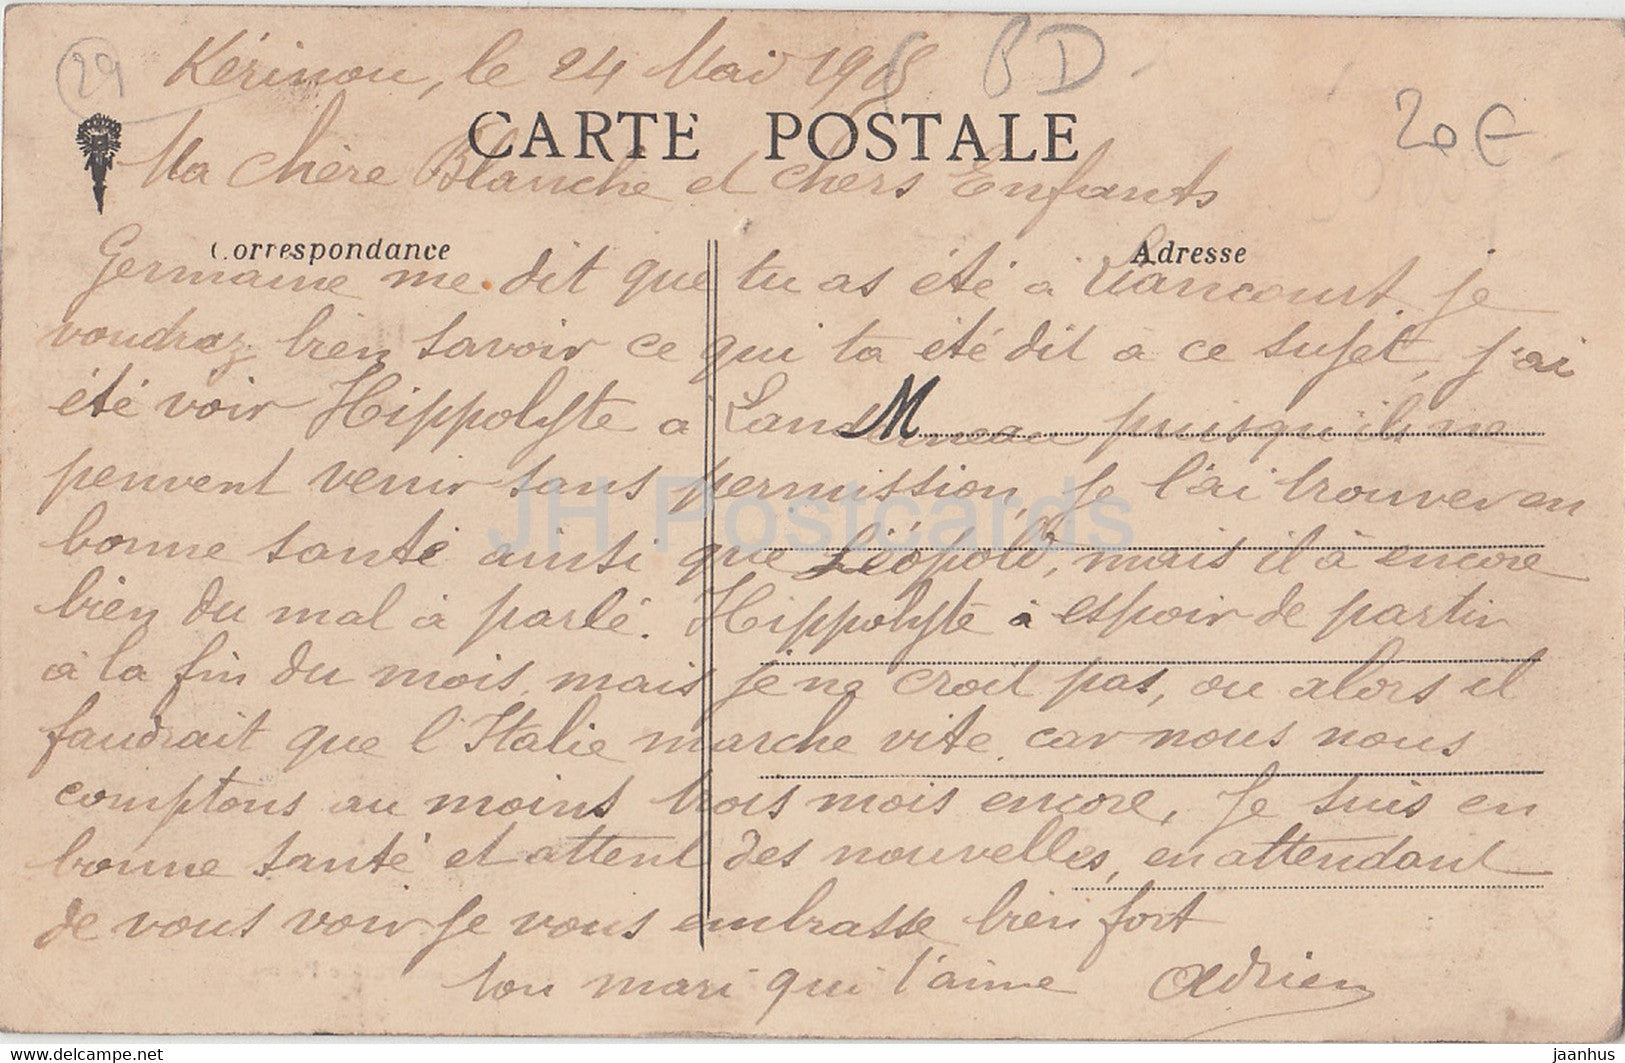 29
Kérinou, le 24 Mai 1915
BD
20€
CARTE POSTALE
Ma chère Blanche et chers Enfants
Correspondance
Adresse
Germaine me dit que tu as été à Liancourt, je
voudraz bien savoir ce qui ta été dit à ce sujet, j'ai
été voir Hippolyte à Landerneau puisqu'ils ne
M
peuvent venir sans permission, Je l'ai trouver en
JH Postcards
bonne santé ainsi que Léopold, mais il à encore
bien du mal à parlé. Hippolyte à espoir de partir
à la fin du mois, mais je ne croit pas, ou alors il
faudrait que l'Italie marche vite car nous nous
comptons au moins trois mois encore, Je suis en
bonne santé et attent des nouvelles, en attendant
de vous voir Je vous embrasse bien fort
ton mari qui t'aime Adrien
www.delcampe.net
jaanhus